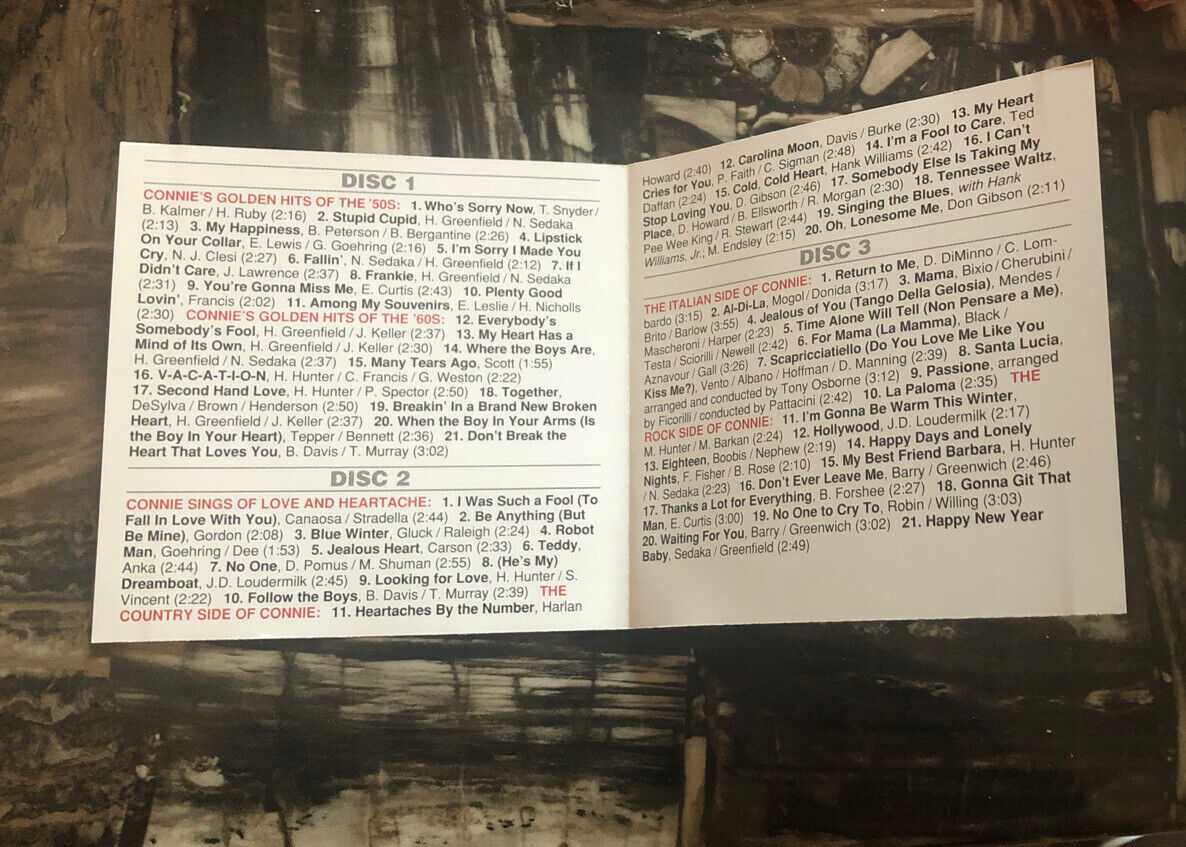 DISC 1
CONNIE'S GOLDEN HITS OF THE '50S: 1. Who's Sorry Now, T. Snyder /
B. Kalmer / H. Ruby (2:16) 2. Stupid Cupid, H. Greenfield / N. Sedaka
(2:13) 3. My Happiness, B. Peterson / B. Bergantine (2:26) 4. Lipstick
On Your Collar, E. Lewis / G. Goehring (2:16) 5. I'm Sorry I Made You
Cry, N. J. Clesi (2:27) 6. Fallin', N. Sedaka / H. Greenfield (2:12) 7. If I
Didn't Care, J. Lawrence (2:37) 8. Frankie, H. Greenfield / N. Sedaka
(2:31) 9. You're Gonna Miss Me, E. Curtis (2:43) 10. Plenty Good
Lovin', Francis (2:02) 11. Among My Souvenirs, E. Leslie / H. Nicholls
(2:30) CONNIE'S GOLDEN HITS OF THE '60S: 12. Everybody's
Somebody's Fool, H. Greenfield / J. Keller (2:37) 13. My Heart Has a
Mind of Its Own, H. Greenfield / J. Keller (2:30) 14. Where the Boys Are,
H. Greenfield / N. Sedaka (2:37) 15. Many Tears Ago, Scott (1:55)
16. V-A-C-A-T-I-O-N, H. Hunter / C. Francis / G. Weston (2:22)
17. Second Hand Love, H. Hunter / P. Spector (2:50) 18. Together,
DeSylva / Brown / Henderson (2:50) 19. Breakin' In a Brand New Broken
Heart, H. Greenfield / J. Keller (2:37) 20. When the Boy In Your Arms (Is
the Boy In Your Heart), Tepper / Bennett (2:36) 21. Don't Break the
Heart That Loves You, B. Davis / T. Murray (3:02)
DISC 2
CONNIE SINGS OF LOVE AND HEARTACHE: 1. I Was Such a Fool (To
Fall In Love With You), Canaosa / Stradella (2:44) 2. Be Anything (But
Be Mine), Gordon (2:08) 3. Blue Winter, Gluck / Raleigh (2:24) 4. Robot
Man, Goehring / Dee (1:53) 5. Jealous Heart, Carson (2:33) 6. Teddy,
Anka (2:44) 7. No One, D. Pomus / M. Shuman (2:55) 8. (He's My)
Dreamboat, J.D. Loudermilk (2:45) 9. Looking for Love, H. Hunter / S.
Vincent (2:22) 10. Follow the Boys, B. Davis / T. Murray (2:39) THE
COUNTRY SIDE OF CONNIE: 11. Heartaches By the Number, Harlan
Howard (2:40) 12. Carolina Moon, Davis / Burke (2:30) 13. My Heart
Cries for You, P. Faith / C. Sigman (2:48) 14. I'm a Fool to Care, Ted
Daffan (2:24) 15. Cold, Cold Heart, Hank Williams (2:42) 16. I Can't
Stop Loving You, D. Gibson (2:46) 17. Somebody Else Is Taking My
Place, D. Howard / B. Ellsworth / R. Morgan (2:30) 18. Tennessee Waltz,
Pee Wee King / R. Stewart (2:44) 19. Singing the Blues, with Hank
Williams, Jr.; M. Endsley (2:15) 20. Oh, Lonesome Me, Don Gibson (2:11)
DISC 3
THE ITALIAN SIDE OF CONNIE: 1. Return to Me, D. DiMinno / C. Lom-
bardo (3:15) 2. Al-Di-La, Mogol / Donida (3:17) 3. Mama, Bixio / Cherubini /
Brito / Barlow (3:55) 4. Jealous of You (Tango Della Gelosia), Mendes /
Mascheroni / Harper (2:23) 5. Time Alone Will Tell (Non Pensare a Me),
Testa / Sciorilli / Newell (2:42) 6. For Mama (La Mamma), Black /
Aznavour / Gall (3:26) 7. Scapricciatiello (Do You Love Me Like You
Kiss Me?), Vento / Albano / Hoffman / D. Manning (2:39) 8. Santa Lucia,
arranged and conducted by Tony Osborne (3:12) 9. Passione, arranged
by Ficorilli / conducted by Pattacini (2:42) 10. La Paloma (2:35) THE
ROCK SIDE OF CONNIE: 11. I'm Gonna Be Warm This Winter,
M. Hunter / M. Barkan (2:24) 12. Hollywood, J.D. Loudermilk (2:17)
13. Eighteen, Boobis / Nephew (2:19) 14. Happy Days and Lonely
Nights, F. Fisher / B. Rose (2:10) 15. My Best Friend Barbara, H. Hunter
/ N. Sedaka (2:23) 16. Don't Ever Leave Me, Barry / Greenwich (2:46)
17. Thanks a Lot for Everything, B. Forshee (2:27) 18. Gonna Git That
Man, E. Curtis (3:00) 19. No One to Cry To, Robin / Willing (3:03)
20. Waiting For You, Barry / Greenwich (3:02) 21. Happy New Year
Baby, Sedaka / Greenfield (2:49)